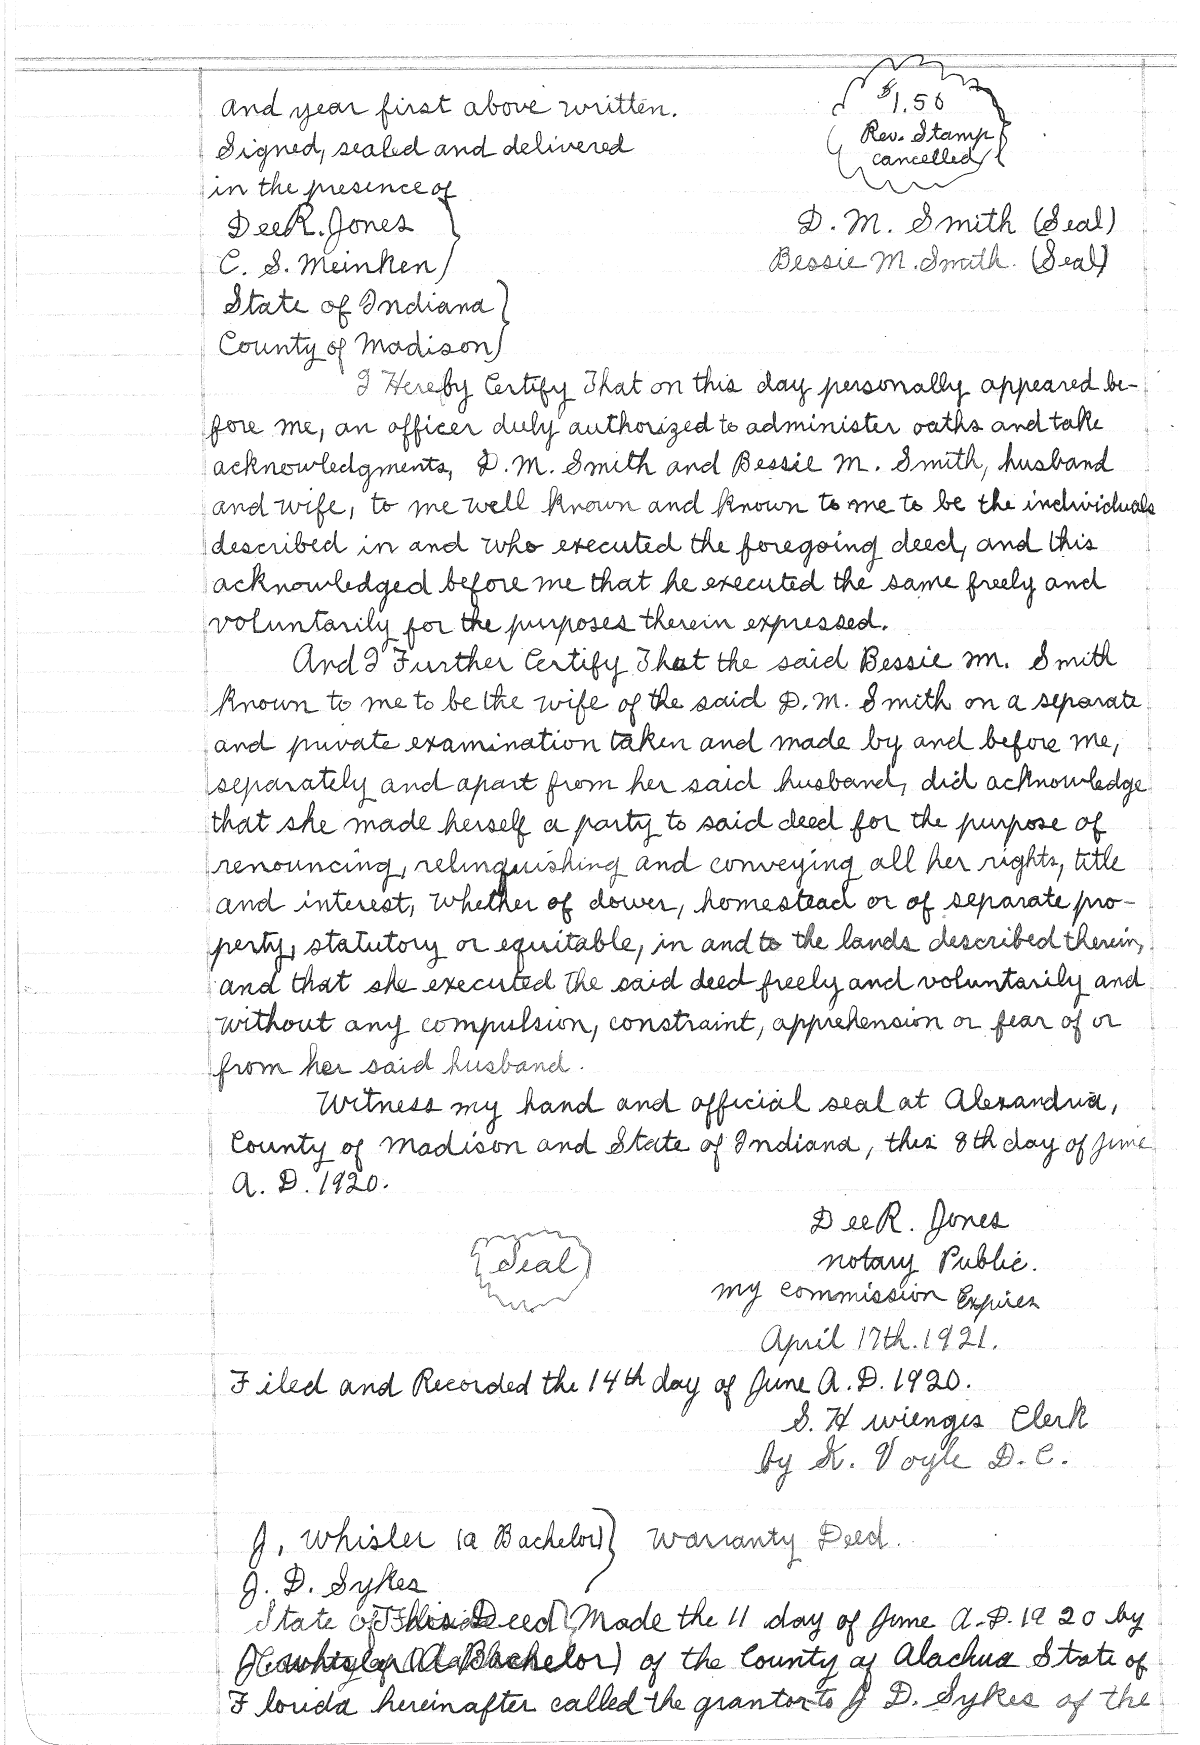 and year first above written.
$1.50
Rev. Stamp
cancelled
Signed, sealed and delivered
in the presence of
Dee R. Jones
D. M. Smith (Seal)
C. S. Meinken
Bessie M. Smith. (Seal)
State of Indiana
County of Madison
I Hereby Certify That on this day personally appeared be-
fore me, an officer duly authorized to administer oaths and take
acknowledgments, D. M. Smith and Bessie M. Smith, husband
and wife, to me well known and known to me to be the individuals
described in and who executed the foregoing deed, and this
acknowledged before me that he executed the same freely and
voluntarily for the purposes therein expressed.
And I Further Certify That the said Bessie M. Smith
known to me to be the wife of the said D. M. Smith on a separate
and private examination taken and made by and before me,
separately and apart from her said husband, did acknowledge
that she made herself a party to said deed for the purpose of
renouncing, relinquishing and conveying all her rights, title
and interest, whether of dower, homestead or of separate pro-
perty, statutory or equitable, in and to the lands described therein,
and that she executed the said deed freely and voluntarily and
without any compulsion, constraint, apprehension or fear of or
from her said husband.
Witness my hand and official seal at Alexandria,
County of Madison and State of Indiana, this 8th day of June
A. D. 1920.
Dee R. Jones
Seal
Notary Public.
My commission Expires
April 17th. 1921.
Filed and Recorded the 14th day of June A. D. 1920.
S. H Wienges Clerk
by K. Voyle D. C.
J, Whisler (a Bachelor) Warranty Deed.
J. D. Sykes
This Deed Made the 11 day of June A. D. 1920 by
J Whisler (A Bachelor) of the County of Alachua State of
Florida hereinafter called the grantor to J D. Sykes of the